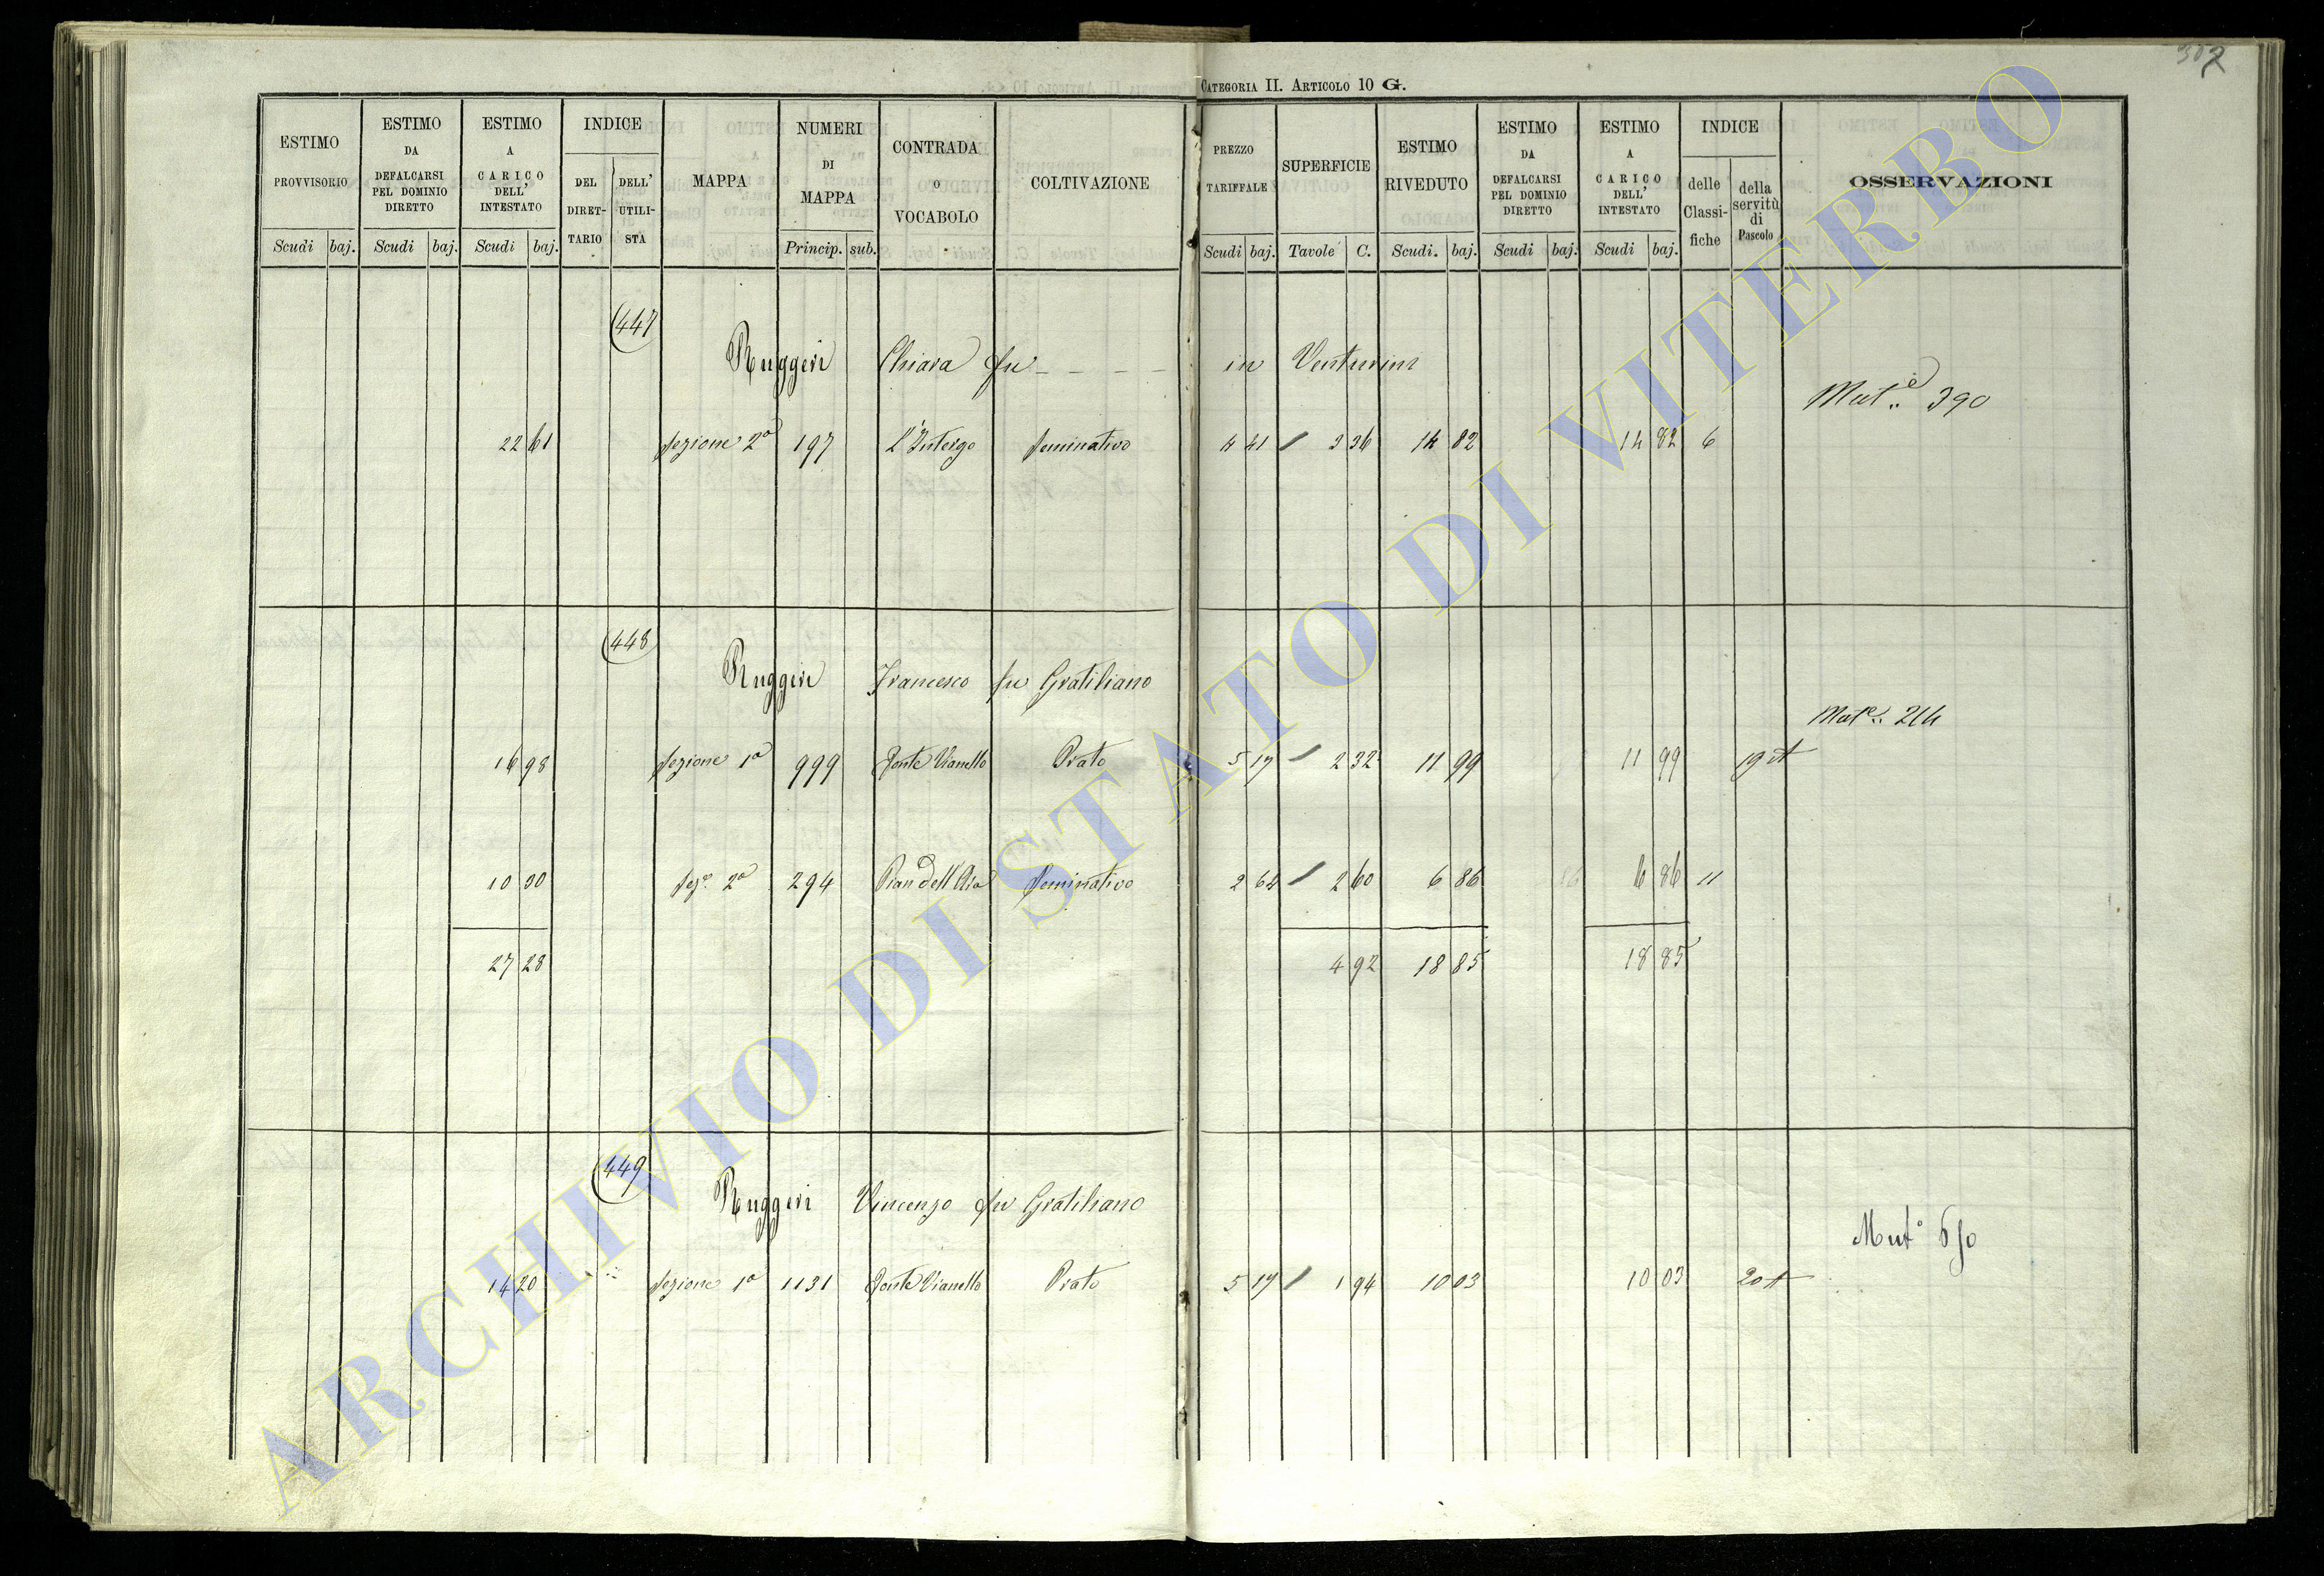 307
CATEGORIA II. ARTICOLO 10 G.
ESTIMO PROVVISORIO Scudi baj.
ESTIMO DA DEFALCARSI PEL DOMINIO DIRETTO Scudi baj.
ESTIMO A CARICO DELL' INTESTATO Scudi baj.
INDICE DEL DIRETTARIO DELL' UTILISTA
MAPPA
NUMERI DI MAPPA Princip. sub.
CONTRADA o VOCABOLO
COLTIVAZIONE
PREZZO TARIFFALE Scudi baj.
SUPERFICIE Tavole C.
ESTIMO RIVEDUTO Scudi. baj.
ESTIMO DA DEFALCARSI PEL DOMINIO DIRETTO Scudi baj.
ESTIMO A CARICO DELL' INTESTATO Scudi baj.
INDICE delle Classifiche della servitù di Pascolo
OSSERVAZIONI
447
Ruggeri Chiara fu - - - - in Venturini
Mut.e 390
22 61 Sezione 2a 197 L'Intergo Seminativo 4 41 3 36 14 82 14 82 6
448
Ruggeri Francesco fu Gratiliano
Mut.e 214
16 98 Sezione 1a 999 Fonte Vianello Prato 5 17 2 32 11 99 11 99 19
10 30 Seze 2a 294 Pian dell'Aia Seminativo 2 64 2 60 6 86 6 86 11
27 28 4 92 18 85 18 85
449
Ruggeri Vincenzo fu Gratiliano
Mut.o
14 20 Sezione 1a 1131 Fonte Vianello Prato 5 17 1 94 10 03 10 03 20
ARCHIVIO DI STATO DI VITERBO